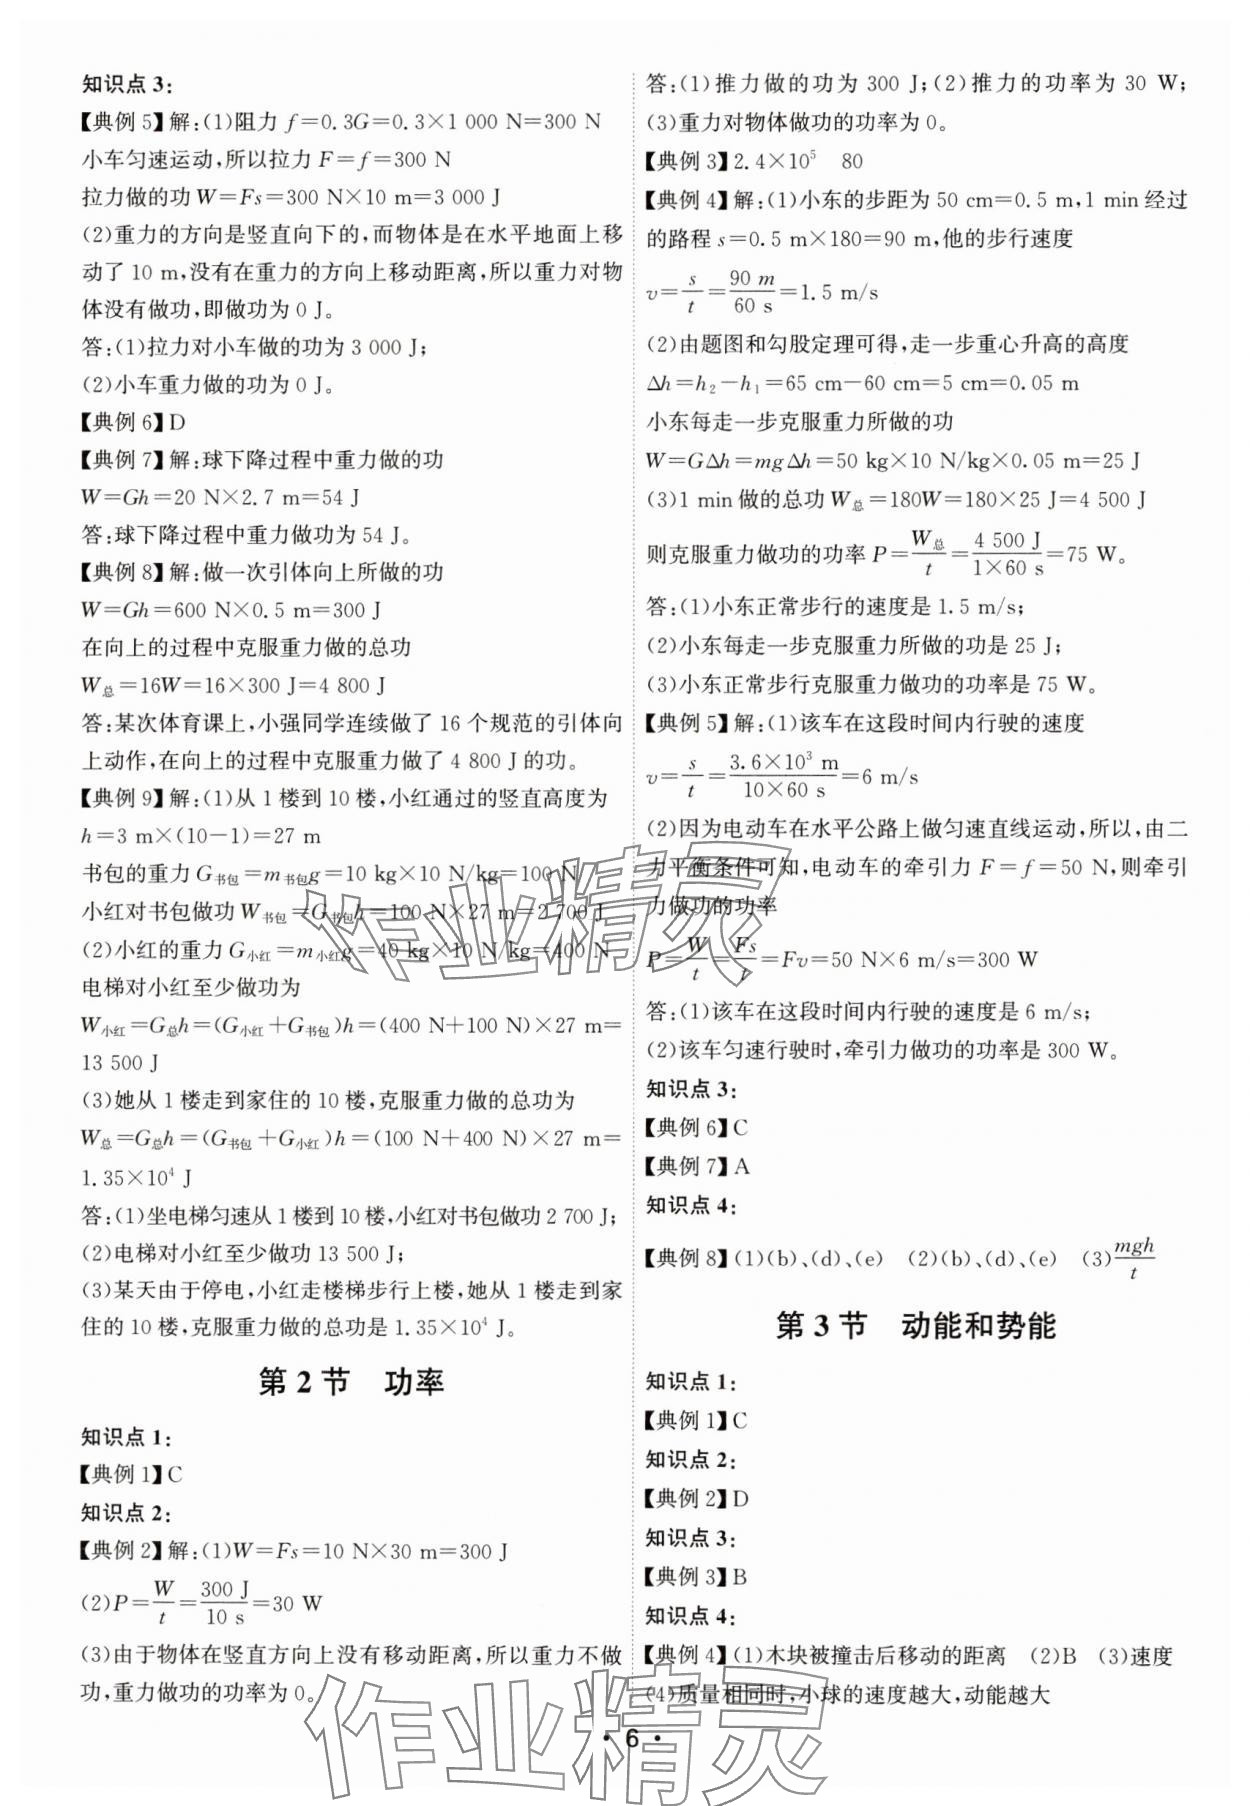 知识点 3:
【典例 5】解:(1)阻力 f=0.3G=0.3×1 000 N=300 N
小车匀速运动,所以拉力 F=f=300 N
拉力做的功 W=Fs=300 N×10 m=3 000 J
(2)重力的方向是竖直向下的,而物体是在水平地面上移
动了 10 m,没有在重力的方向上移动距离,所以重力对物
体没有做功,即做功为 0 J。
答:(1)拉力对小车做的功为 3 000 J;
(2)小车重力做的功为 0 J。
【典例 6】D
【典例 7】解:球下降过程中重力做的功
W=Gh=20 N×2.7 m=54 J
答:球下降过程中重力做功为 54 J。
【典例 8】解:做一次引体向上所做的功
W=Gh=600 N×0.5 m=300 J
在向上的过程中克服重力做的总功
W总=16W=16×300 J=4 800 J
答:某次体育课上,小强同学连续做了 16 个规范的引体向
上动作,在向上的过程中克服重力做了 4 800 J 的功。
【典例 9】解:(1)从 1 楼到 10 楼,小红通过的竖直高度为
h=3 m×(10-1)=27 m
书包的重力 G书包=m书包g=10 kg×10 N/kg=100 N
小红对书包做功 W书包=G书包h=100 N×27 m=2 700 J
(2)小红的重力 G小红=m小红g=40 kg×10 N/kg=400 N
电梯对小红至少做功为
W小红=G总h=(G小红+G书包)h=(400 N+100 N)×27 m=
13 500 J
(3)她从 1 楼走到家住的 10 楼,克服重力做的总功为
W总=G总h=(G书包+G小红)h=(100 N+400 N)×27 m=
1.35×10⁴ J
答:(1)坐电梯匀速从 1 楼到 10 楼,小红对书包做功 2 700 J;
(2)电梯对小红至少做功 13 500 J;
(3)某天由于停电,小红走楼梯步行上楼,她从 1 楼走到家
住的 10 楼,克服重力做的总功是 1.35×10⁴ J。
第 2 节 功率
知识点 1:
【典例 1】C
知识点 2:
【典例 2】解:(1)W=Fs=10 N×30 m=300 J
(2)P=W/t=300 J/10 s=30 W
(3)由于物体在竖直方向上没有移动距离,所以重力不做
功,重力做功的功率为 0。
答:(1)推力做的功为 300 J;(2)推力的功率为 30 W;
(3)重力对物体做功的功率为 0。
【典例 3】2.4×10⁵ 80
【典例 4】解:(1)小东的步距为 50 cm=0.5 m,1 min 经过
的路程 s=0.5 m×180=90 m,他的步行速度
v=s/t=90 m/60 s=1.5 m/s
(2)由题图和勾股定理可得,走一步重心升高的高度
Δh=h₂-h₁=65 cm-60 cm=5 cm=0.05 m
小东每走一步克服重力所做的功
W=GΔh=mgΔh=50 kg×10 N/kg×0.05 m=25 J
(3)1 min 做的总功 W总=180W=180×25 J=4 500 J
则克服重力做功的功率 P=W总/t=4 500 J/1×60 s=75 W。
答:(1)小东正常步行的速度是 1.5 m/s;
(2)小东每走一步克服重力所做的功是 25 J;
(3)小东正常步行克服重力做功的功率是 75 W。
【典例 5】解:(1)该车在这段时间内行驶的速度
v=s/t=3.6×10³ m/10×60 s=6 m/s
(2)因为电动车在水平公路上做匀速直线运动,所以,由二
力平衡条件可知,电动车的牵引力 F=f=50 N,则牵引
力做功的功率
P=W/t=Fs/t=Fv=50 N×6 m/s=300 W
答:(1)该车在这段时间内行驶的速度是 6 m/s;
(2)该车匀速行驶时,牵引力做功的功率是 300 W。
知识点 3:
【典例 6】C
【典例 7】A
知识点 4:
【典例 8】(1)(b)、(d)、(e) (2)(b)、(d)、(e) (3)mgh/t
第 3 节 动能和势能
知识点 1:
【典例 1】C
知识点 2:
【典例 2】D
知识点 3:
【典例 3】B
知识点 4:
【典例 4】(1)木块被撞击后移动的距离 (2)B (3)速度
(4)质量相同时,小球的速度越大,动能越大
· 6 ·
作业精灵
作业精灵